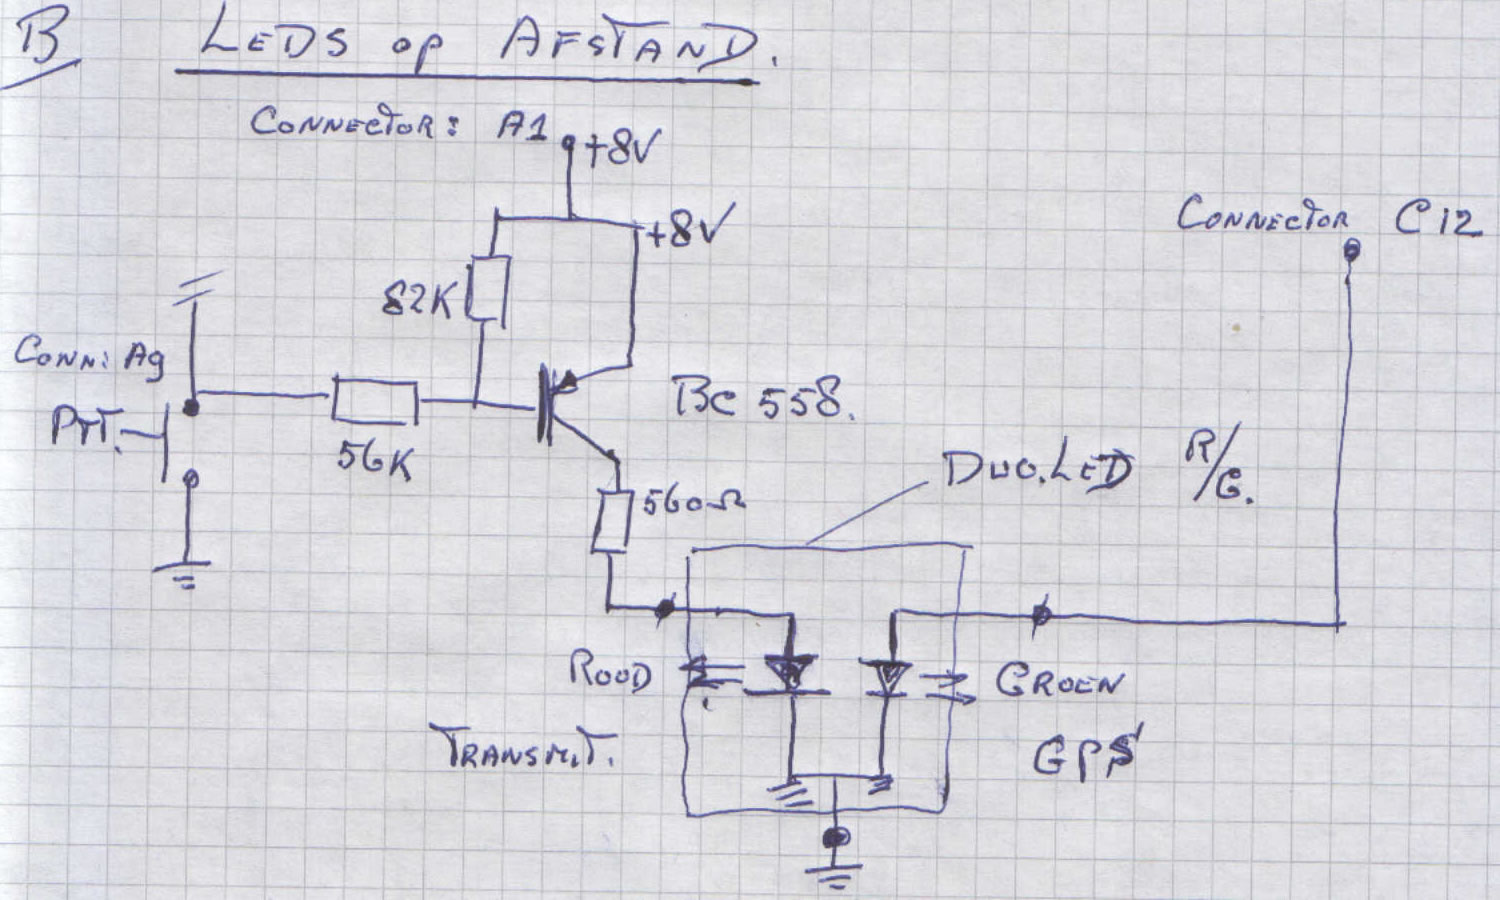 B LEDS op AFSTAND.
CONNECTOR: A1
+8V
+8V
CONNECTOR C12
82K
CONN: A9
PTT.
56K
BC 558.
DUO.LED R/G.
560Ω
ROOD
GROEN
TRANSMIT.
GPS